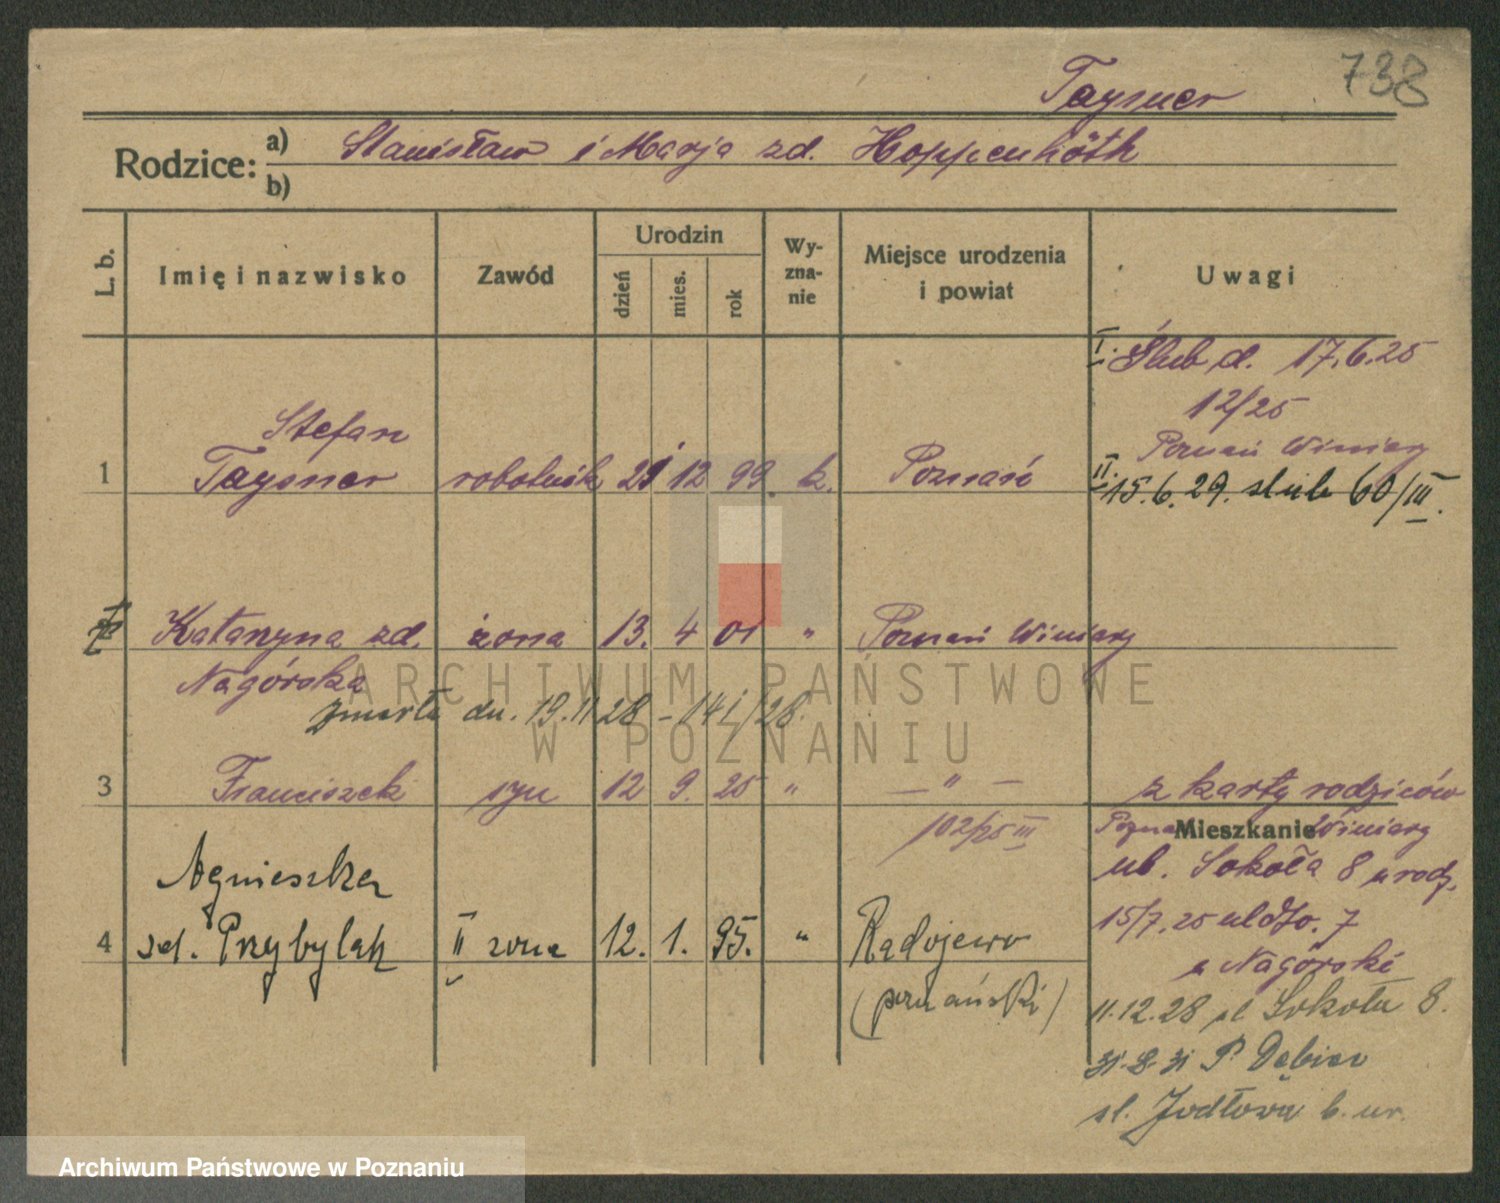 738
Taysner
Rodzice: a) Stanisław i Marja zd. Hoppenhöth
b)
L. b. Imię i nazwisko Zawód Urodzin dzień mies. rok Wy-zna-nie Miejsce urodzenia i powiat Uwagi
I. Ślub d. 17.6.25
12/25
Poznań Winiary
Stefan
1 Taysner robotnik 21 12 99 k. Poznań
II. 15.6.29. slub 60/III.
Katarzyna zd. żona 13. 4 01 " Poznań Winiary
Nagórska
zmarła dn. 19.11 28 - 141/28.
3 Franciszek syn 12 9. 25 " — " — z karty rodziców
102/25 III
Mieszkanie
Poznań Winiary
ul. Sokoła 8 u rodz.
15/7.25 uldto. 7
u Nagórski
Agnieszka
4 zd. Przybylak II zona 12. 1. 95. " Radojewo
(poznański)
11.12.28 ul Sokoła 8.
31-8-31 P. Dębiec
ul. Jodłowa b. nr.
ARCHIWUM PAŃSTWOWE
W POZNANIU
Archiwum Państwowe w Poznaniu